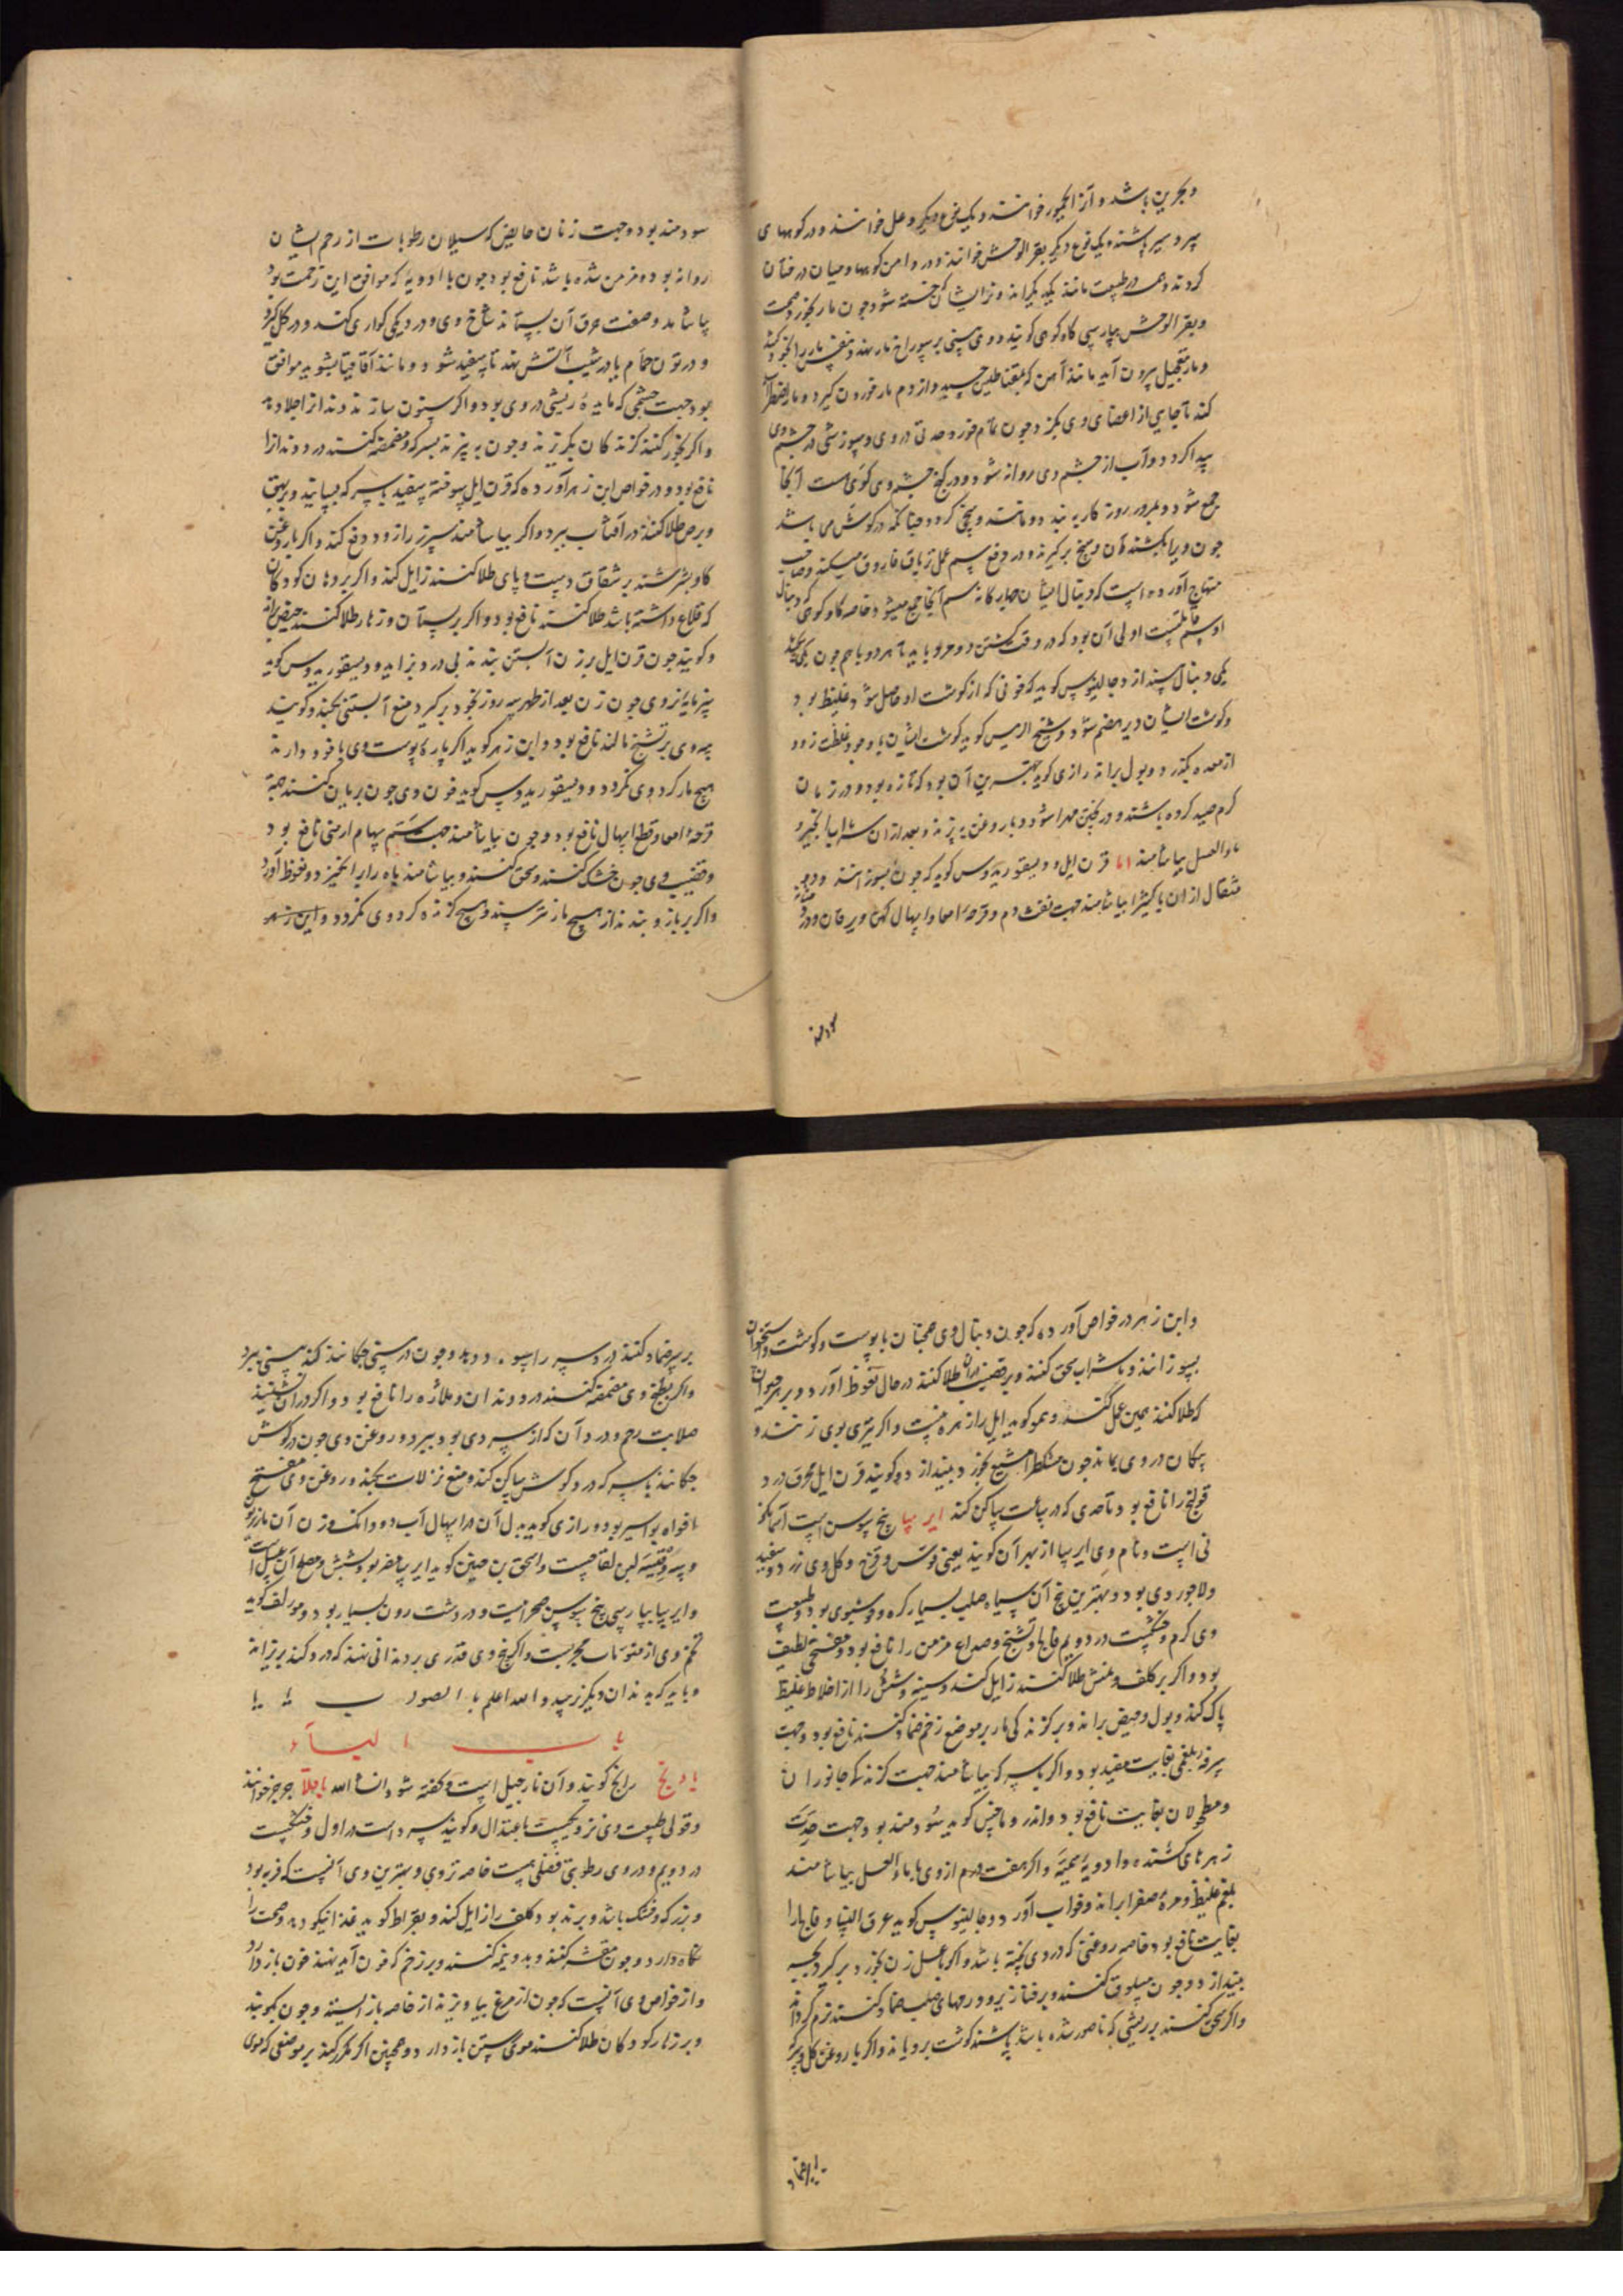 و بحرین باشد و آنرا الیحمور خوانند و یک نوع دیکر وعل خوانند و در کوههای
پرد سیر باشند و یک نوع دیکر بقر الوحش خوانند و در دامن کوهها و میان درختان
کردند و همه در طبیعت مانند یکدیکراند و از ایشان خسته شود چون مار بخورد صحت
و بقر الوحش بپارسی کاو کوهی کویند و وی بینی بر سوراخ مار نهد و نفس باز را بخود کشد
و مار بتعجیل بیرون آید مانند آهن که بمقناطیس چسپد و از دم مار خوردن کیرد و مار اضطراب
کند تا جایی از اعضای وی بکزد چون تمام خورد حدتی در وی و سوزشی در چشم وی
پیدا کردد و آب از چشم وی روانه شود و در کنج چشم وی کوی هست آنجا
جمع شود و بمرور روزکار به بندد و مانند وسخی کردد چنانکه در کوش می باشد
چون ویرا بکشند آن وسخ برکیرند و در دفع سم عمل تریاق فاروق میکند و صاحب
منهاج آورده است که دنبال ایشان جدا کانه سم آنجا جمع میشود خاصه کاو کوهی که دنبال
او سم قاتلست اولی آن بود که در وقت کشتن دو مرد باید تا هر دو باهم چون یکی
یکی دنبال بیندازد جالینوس کوید که خونی که از کوشت او حاصل شود غلیظ بود
و کوشت ایشان دیر هضم شود و شیخ الرییس کوید کوشت ایشان با وجود غلظت زود
از معده بکذرد و بول براند رازی کوید بهترین آن بود که تازه بود و در زمان
کرم صید کرده باشند و در پختن مهرا شود و با روغن بپزند و بعد از آن شراب انجیر و
ماء العسل بیاشامند اما قرن ایل دیسقوریدوس کوید که چون بسوزانند و دو
مثقال از ان با کثیرا بیاشامند جهت نفث دم و قرحه امعا و اسهال کهن و یرقان و درد مثانه
سودمند
سودمند بود و جهت زنان حایض که سیلان رطوبات از رحم ایشان
روانه بود و مزمن شده باشد نافع بود چون با ادویه که موافق این زحمت بود
بیاشامند و صفت حرق آن بستانند شاخ وی و در دیکی کواری کنند و در کل کیرند
و در تون حمام یا در شیب آتش نهند تا سفید شود و مانند اقاقیا بشویند موافق
بود جهت چشمی که ماده ریشی در وی بود و اکر سنون سازند دندانرا جلا دهد
و اکر بخور کنند کزندکان بکریزند و چون بپزند بسرکه و مضمضه کنند درد دندانرا
نافع بود و در خواص ابن زهر آورده که قرن ایل سوخته سفید با سرکه بسایند و بر بهق
و برص طلا کنند در آفتاب ببرد و اکر بیاشامند سپرز را زود دفع کند و اکر با روغن
کاو بسرشند بر شقاق دست و پای طلا کنند زایل کند و اکر بر دهان کودکان
که قلاع داشته باشد طلا کنند نافع بود و اکر بر پستان و زهار طلا کنند حیض براند
و کویند چون قرن ایل بر زن آبستن بندند بی درد بزاید و دیسقوریدوس کوید
پنیر مایه نر وی چون زن بعد از طهر سه روز بخود برکیرد منع آبستنی بکند و کویند
پیه وی بر تشنج مالند نافع بود و ابن زهر کوید اکر پاره پوست وی با خود دارند
هیچ مار کرد وی نکردد و دیسقوریدوس کوید خون وی چون بریان کنند جهة
قرحه امعا و قطع اسهال نافع بود و چون بیاشامند جهت سم سهام ارمنی نافع بود
و قضیب وی چون خشک کنند و سحق کنند و بیاشامند باه را برانکیزد و نعوظ آورد
و اکر بر بازو بندند از هیچ مار نترسند و هیچ کزنده کرد وی نکردد و ابن زهر
و ابن زهر در خواص آورده که چون دنبال وی همچنان با پوست و کوشت و استخوان
بسوزانند و با شراب سحق کنند و بر قضیب طلا کنند در حال نعوظ آورد و بر هر حیوان
که طلا کنند همین عمل کند و هم کوید ایل را زهره نیست و اکر تیری بوی زنند و
پیکان در وی بماند چون مشکطرامشیع بخورد بیندازد و کویند قرن ایل محرق درد
قولنج را نافع بود تا حدی که در ساعت ساکن کند ایرسا بیخ سوسن است آسمانکو
نی است و نام وی ایرسا از بهر آن کویند یعنی قوس و قزح و کل وی زرد و سفید
و لاجوردی بود و بهترین بیخ آن سیاه صلب بسیار کره و خوشبوی بود و طبیعت
وی کرم و خشکست در دویم فالج و تشنج و صداع مزمن را نافع بود و مفتح و لطیف
بود و اکر بر کلف و نمش طلا کنند زایل کند و سینه و شش را از اخلاط غلیظ
پاک کند و بول و حیض براند و بر کزندکی مار بر موضع زخم ضماد کنند نافع بود و جهت
سرفه بلغمی بغایت مفید بود و اکر با سرکه بیاشامند جهت کزندکی جانوران
و مطحولان بغایت نافع بود و اندروماخس کوید سودمند بود جهت حدت
زهرهای کشنده و ادویه سمیه و اکر هفت درم از وی با ماء العسل بیاشامند
بلغم غلیظ و مره صفرا براند و خواب آورد و جالینوس کوید عرق النسا و فالج را
بغایت نافع بود خاصه روغنی که در وی پخته باشد و اکر با عسل زن بخود برکیرد بچه
بیندازد و چون مسلوق کنند و بر خنازیر و ورمهای صلب ضماد کنند نرم کرداند
و اکر سحق کنند بر ریشی که ناصور شده باشد پاشند کوشت برویاند و اکر با روغن کل و سرکه
بر سر ضماد
بر سر ضماد کنند درد سر را سود دهد و چون در بینی چکانند کند بینی ببرد
و اکر بطبیخ وی مضمضه کنند درد دندان و ملازه را نافع بود و اکر در ان نشینند
صلابت رحم و درد آن که از سردی بود ببرد و روغن وی چون در کوش
چکانند با سرکه درد کوش ساکن کند و منع نزلات بکند و روغن وی مفتح
افواه بواسیر بود و رازی کوید بدل آن در اسهال آب دو دانک وزن آن مازریون
و سه وقیه لبن لقاحست و اسحق بن حنین کوید ایرسا مضر بود بشش و مصلح آن عسل است
و ایرسا بپارسی بیخ سوسن صحراییست و در دشت رون بسیار بود و مولف کوید
تخم وی از منومات مجربست و اکر بیخ وی قدری بر دندانی نهند که درد کند بریزاند
و باید که بدندان دیکر نرسد و الله اعلم بالصواب
باب الباء
بادنج رانج کویند و آن نارجیل است و کفته شود انشاء الله باقلا جرجر خوانند
و قولی طبیعت وی نزدیکست باعتدال و کویند سرد است در اول و خشکست
در دویم و در وی رطوبتی فضلی هست خاصه تر وی و بهترین وی آنست که فربه بود
و بزرک و خشک باشد و برنده بود کلف را زایل کند و بقراط کوید غذا نیکو دهد و صحت را
نکاه دارد و چون مقشر کنند و بدو نیم کنند و بر زخم که خون آید نهند خون باز دارد
و از خواص وی آنست که چون از مرغ بیاویزند از خایه باز ایستد و چون بکویند
و بر زهار کودکان طلا کنند موی رستن باز دارد و همچنین اکر مکرر کنند بر موضعی که موی